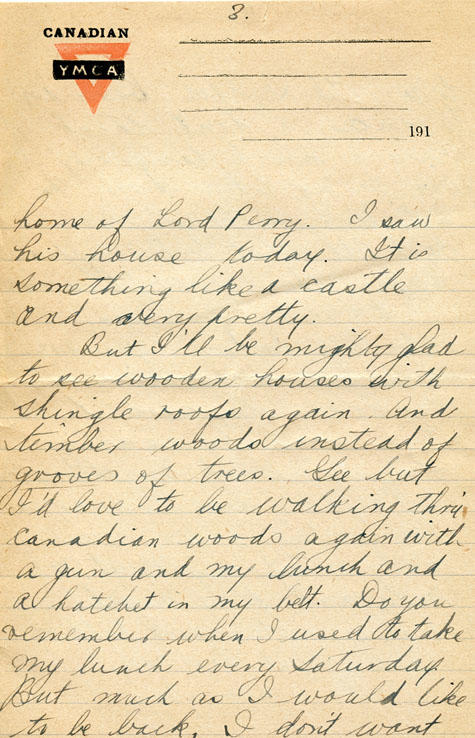 3.
CANADIAN
YMCA
191
home of Lord Perry. I saw
his house today. It is
something like a castle
and very pretty.
But I'll be mighty glad
to see wooden houses with
shingle roofs again. And
timber woods instead of
groves of trees. Gee but
I'd love to be walking thru
Canadian woods again with
a gun and my lunch and
a hatchet in my belt. Do you
remember when I used to take
my lunch every Saturday.
But much as I would like
to be back, I don't want